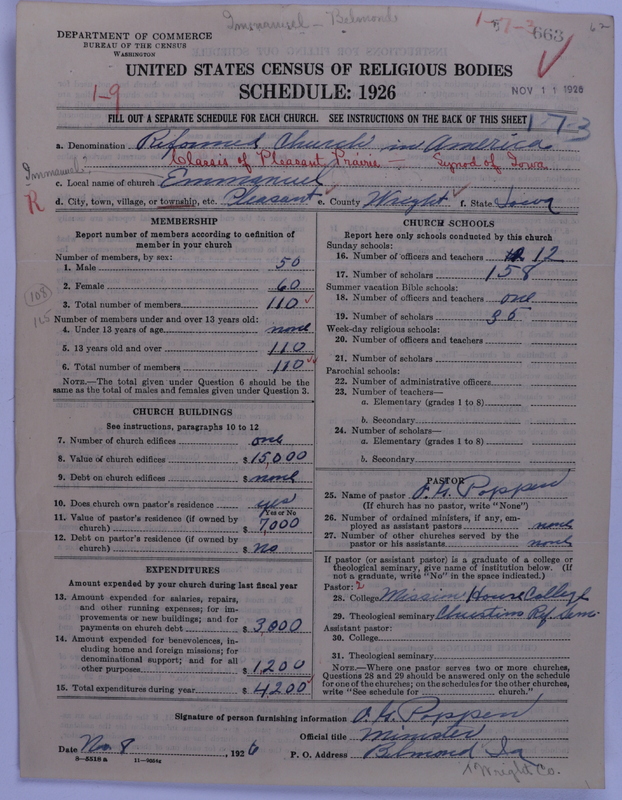 Immanuel - Belmond
1-57-3 663
62
DEPARTMENT OF COMMERCE
BUREAU OF THE CENSUS
WASHINGTON
UNITED STATES CENSUS OF RELIGIOUS BODIES
SCHEDULE: 1926
1-9
NOV 11 1926
FILL OUT A SEPARATE SCHEDULE FOR EACH CHURCH. SEE INSTRUCTIONS ON THE BACK OF THIS SHEET
1-7-3
a. Denomination Reformed Church in America
Classis of Pleasant Prairie - Synod of Iowa
Immanuel?
c. Local name of church Emmanuel
R
d. City, town, village, or township, etc. Pleasant e. County Wright f. State Iowa
MEMBERSHIP
Report number of members according to definition of
member in your church
Number of members, by sex:
1. Male 50
2. Female 60
3. Total number of members 110
(108)
Number of members under and over 13 years old:
4. Under 13 years of age none
5. 13 years old and over 110
6. Total number of members 110
NOTE.—The total given under Question 6 should be the
same as the total of males and females given under Question 3.
CHURCH BUILDINGS
See instructions, paragraphs 10 to 12
7. Number of church edifices one
8. Value of church edifices $ 15,000
9. Debt on church edifices $ none
10. Does church own pastor's residence yes
Yes or No
11. Value of pastor's residence (if owned by
church) $ 7,000
12. Debt on pastor's residence (if owned by
church) $ no
EXPENDITURES
Amount expended by your church during last fiscal year
13. Amount expended for salaries, repairs,
and other running expenses; for im-
provements or new buildings; and for
payments on church debt $ 3,000
14. Amount expended for benevolences, in-
cluding home and foreign missions; for
denominational support; and for all
other purposes $ 1200
15. Total expenditures during year $ 4200
CHURCH SCHOOLS
Report here only schools conducted by this church
Sunday schools:
16. Number of officers and teachers 12
17. Number of scholars 158
Summer vacation Bible schools:
18. Number of officers and teachers one
19. Number of scholars 35
Week-day religious schools:
20. Number of officers and teachers
21. Number of scholars
Parochial schools:
22. Number of administrative officers
23. Number of teachers—
a. Elementary (grades 1 to 8)
b. Secondary
24. Number of scholars—
a. Elementary (grades 1 to 8)
b. Secondary
PASTOR
25. Name of pastor O. G. Poppen
(If church has no pastor, write "None")
26. Number of ordained ministers, if any, em-
ployed as assistant pastors none
27. Number of other churches served by the
pastor or his assistants none
If pastor (or assistant pastor) is a graduate of a college or
theological seminary, give name of institution below. (If
not a graduate, write "No" in the space indicated.)
Pastor: 2
28. College Mission House College
29. Theological seminary Christians Ref. Semi.
Assistant pastor:
30. College
31. Theological seminary
NOTE.—Where one pastor serves two or more churches,
Questions 28 and 29 should be answered only on the schedule
for one of the churches; on the schedules for the other churches,
write "See schedule for church."
Signature of person furnishing information O. G. Poppen
Official title Minister
Date Nov 8, 1926
P. O. Address Belmond Ia
Wright Co.
8-5518 a